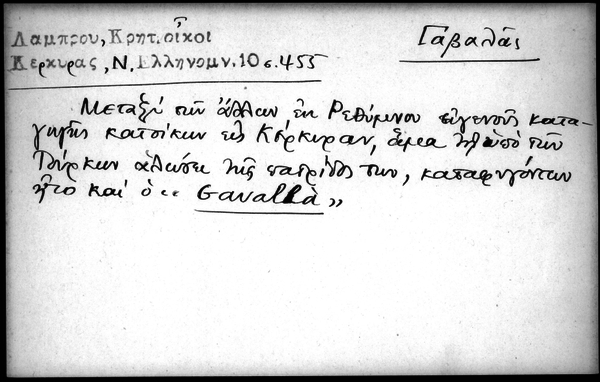 Λαμπρου, Κρητ. οἶκοι
Κερκυρας, Ν. Ελληνομν. 10 σ. 455
Γαβαλᾶς
Μεταξὺ τῶν ἄλλων ἐκ Ρεθύμνου εὐγενοῦς κατα-
γωγῆς κατοίκων εἰς Κέρκυραν, ἅμα τῇ ὑπὸ τῶν
Τούρκων ἁλώσει τῆς πατρίδος των, καταφυγόντων
ἦτο καὶ ὁ "Gavallà"